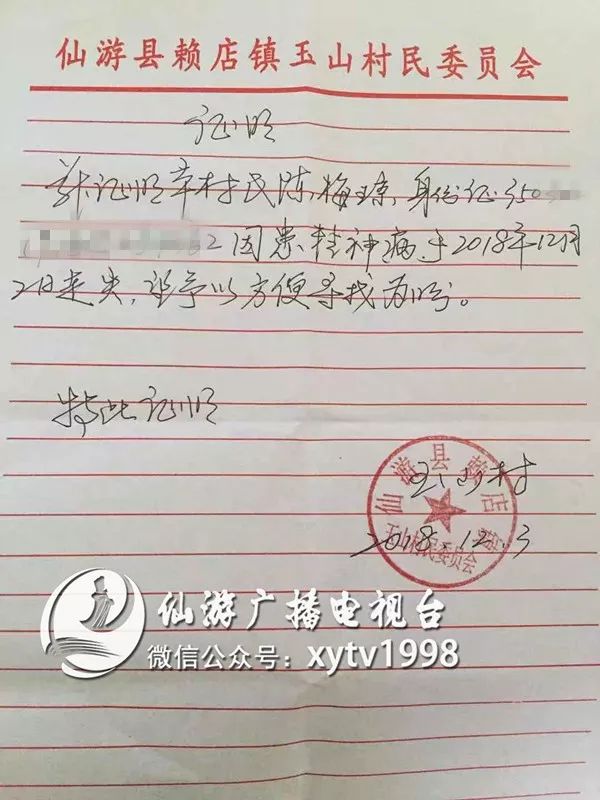 仙游县赖店镇玉山村民委员会
证明
兹证明本村民陈梅琼,身份证350
2因患精神病,于2018年12月
2日走失,望予以方便寻找为盼。
特此证明
玉山村
2018.12.3
仙游县赖店
玉山村民委员会
仙游广播电视台
微信公众号：xytv1998